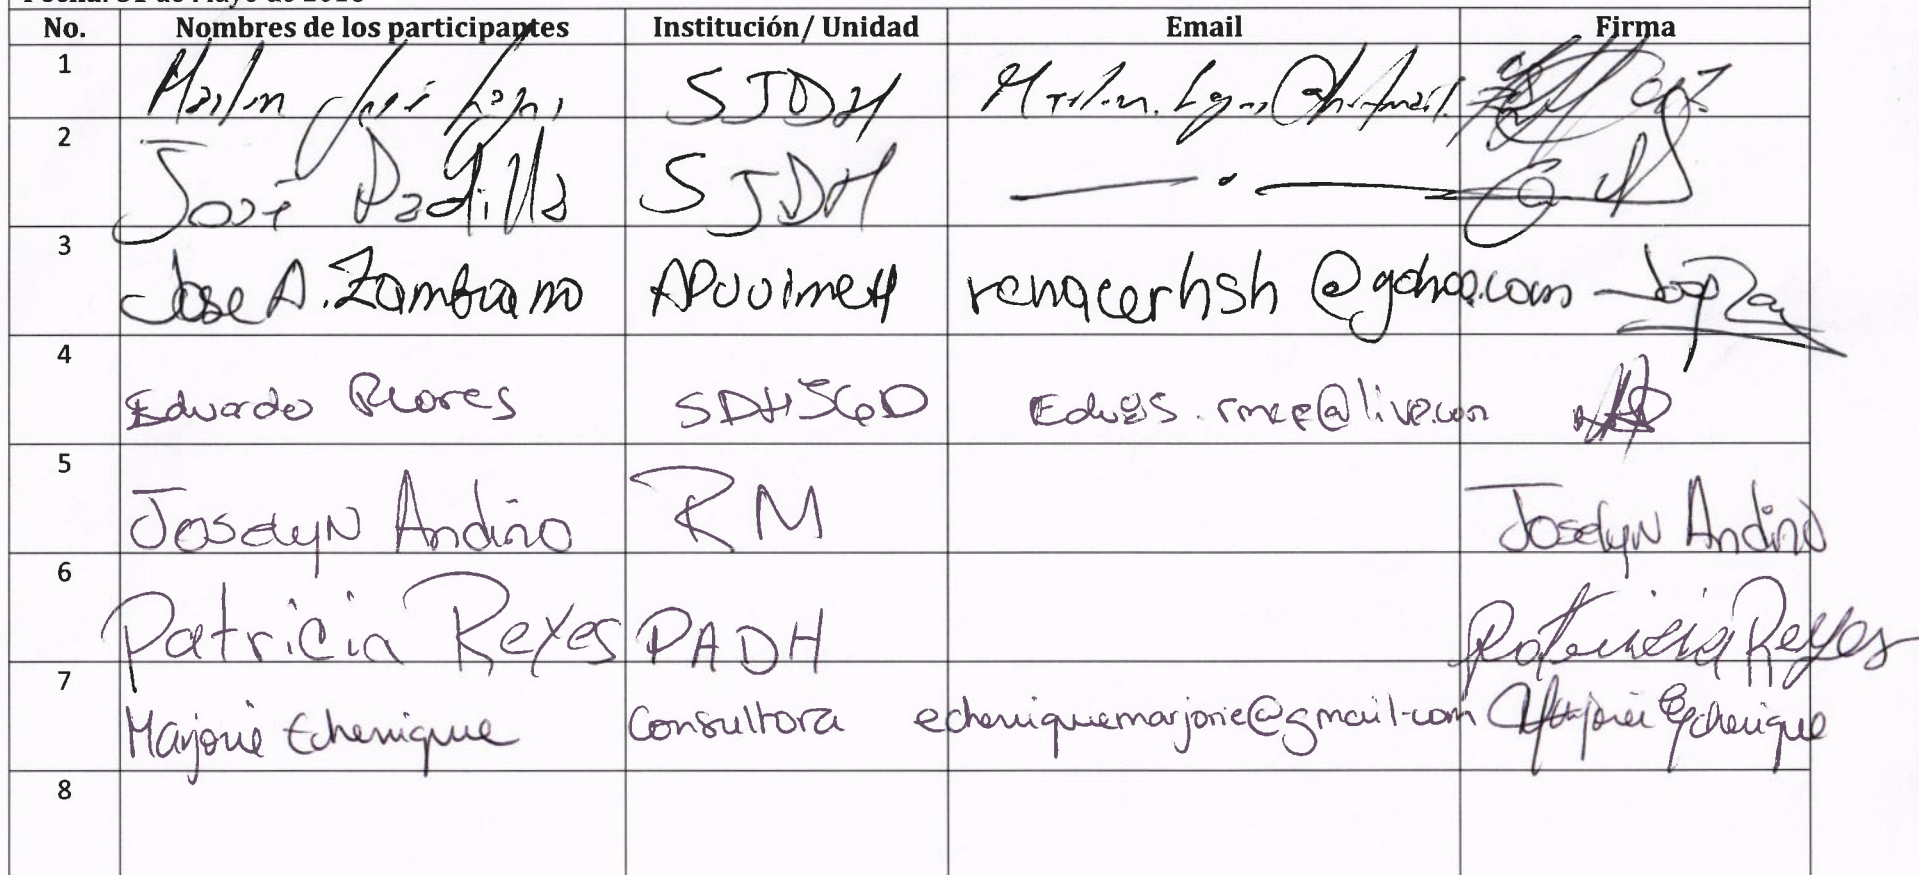 No. Nombres de los participantes Institución/ Unidad Email Firma
1 Marlon José SJDH
2 José Padilla SJDH
3 Jose A. Zambrano APUVIMEH renacerhsh @yahoo.com
4 Eduardo Flores
5 Joselyn Andino RM Joselyn Andino
6 Patricia Reyes PADH Patricia Reyes
7 Marjorie Echenique Consultora echeniquemarjorie@gmail.com Marjorie Echenique
8